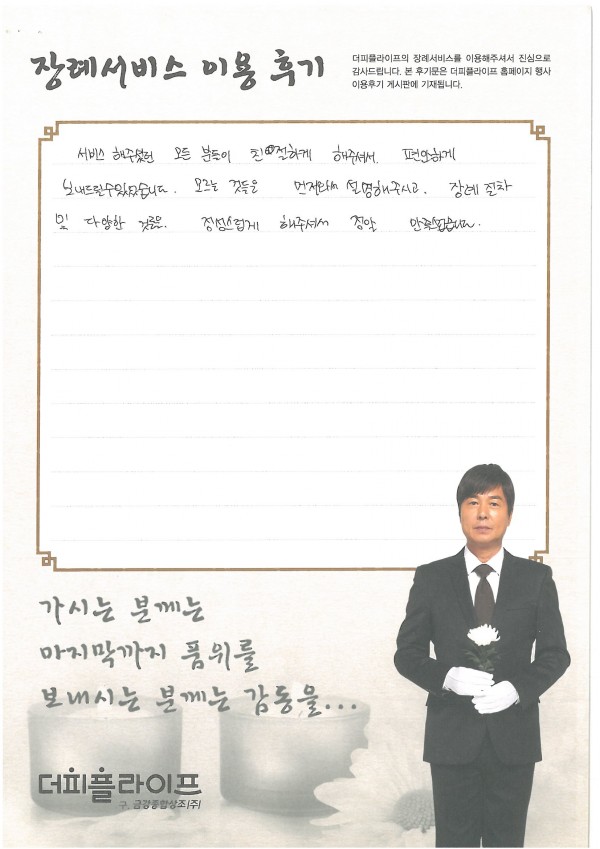 장례서비스 이용 후기
더피플라이프의 장례서비스를 이용해주셔서 진심으로
감사드립니다. 본 후기문은 더피플라이프 홈페이지 행사
이용후기 게시판에 기재됩니다.
서비스 해주셨던 모든 분들이 친절하게 해주셔서. 편안하게
보내드릴수있었습니다. 모르는 것들은 먼저와서 설명해주시고. 장례 절차
및 다양한 것들을. 정성스럽게 해주셔서 정말 만족스럽습니다.
가시는 분께는
마지막까지 품위를
보내시는 분께는 감동을...
더피플라이프
구. 금강종합상조(주)